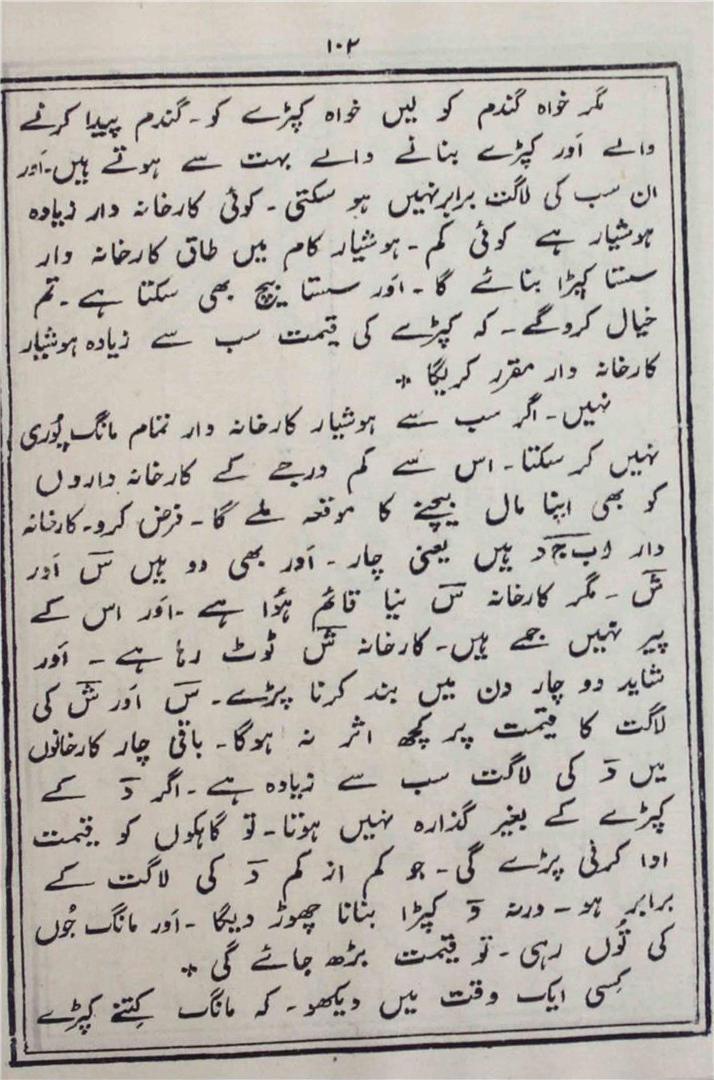 ۱۰۲
مگر خواہ گندم کو لیں خواہ کپڑے کو۔ گندم پیدا کرنے
والے اَور کپڑے بنانے والے بہت سے ہوتے ہیں۔ اَور
ان سب کی لاگت برابر نہیں ہو سکتی۔ کوئی کارخانہ دار زیادہ
ہوشیار ہے کوئی کم۔ ہوشیار کام میں طاق کارخانہ دار
سستا کپڑا بنائے گا۔ اَور سستا بیچ بھی سکتا ہے۔ تم
خیال کروگے۔ کہ کپڑے کی قیمت سب سے زیادہ ہوشیار
کارخانہ دار مقرر کریگا *
نہیں۔ اگر سب سے ہوشیار کارخانہ دار تمام مانگ پُوری
نہیں کر سکتا۔ اس سے کم درجے کے کارخانہ داروں
کو بھی اپنا مال بیچنے کا موقعہ ملے گا۔ فرض کرو۔ کارخانہ
دار ا ب ج د ہیں یعنی چار۔ اَور بھی دو ہیں سؔ اَور
شؔ ۔ مگر کارخانہ سؔ نیا قائم ہؤا ہے۔ اَور اس کے
پیر نہیں جمے ہیں۔ کارخانہ شؔ ٹوٹ رہا ہے۔ اَور
شاید دو چار دن میں بند کرنا پڑے۔ سؔ اَور شؔ کی
لاگت کا قیمت پر کچھ اثر نہ ہوگا۔ باقی چار کارخانوں
میں دؔ کی لاگت سب سے زیادہ ہے۔ اگر دؔ کے
کپڑے کے بغیر گذارہ نہیں ہوتا۔ تو گاہکوں کو قیمت
ادا کرنی پڑے گی۔ جو کم از کم دؔ کی لاگت کے
برابر ہو۔ ورنہ دؔ کپڑا بنانا چھوڑ دیگا۔ اَور مانگ جُوں
کی تُوں رہی۔ تو قیمت بڑھ جائے گی *
کِسی ایک وقت میں دیکھو۔ کہ مانگ کِتنے کپڑے